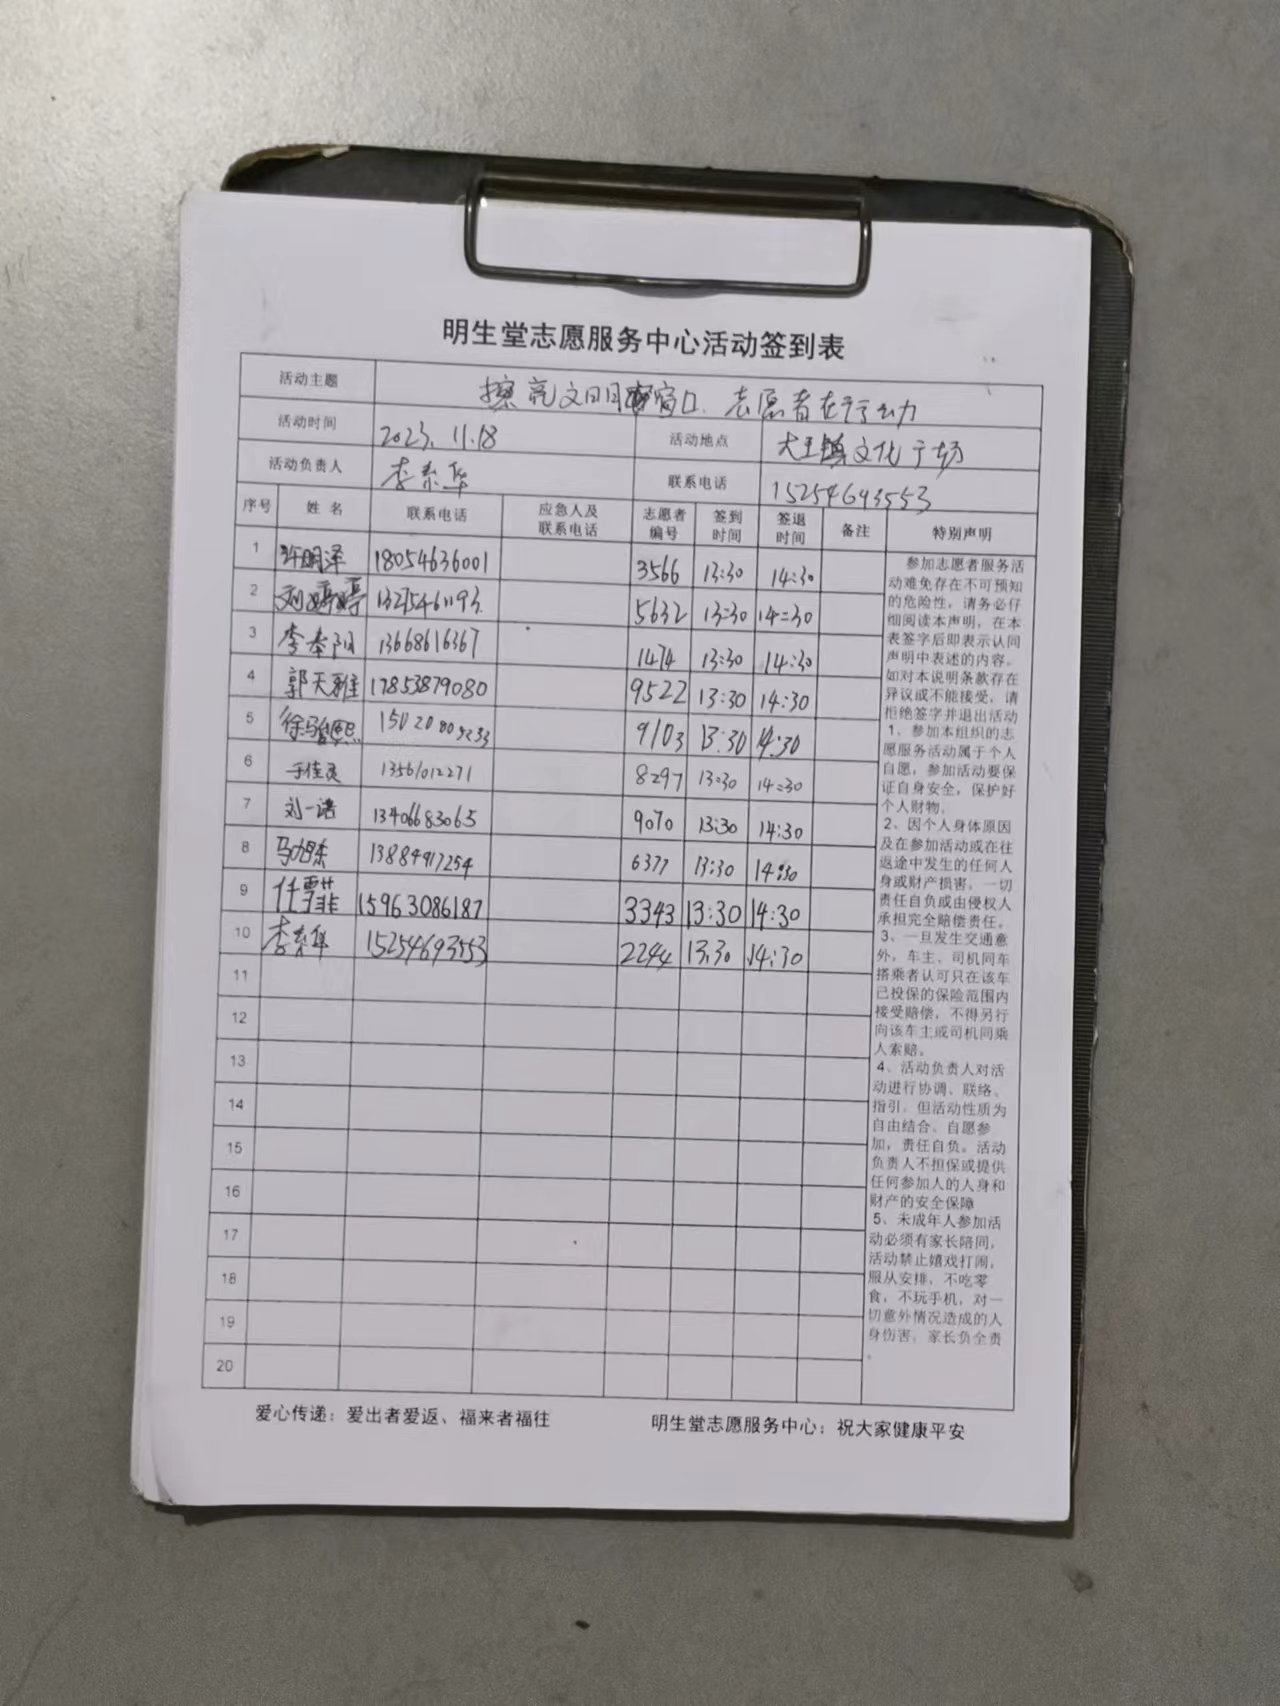 明生堂志愿服务中心活动签到表
活动主题 擦亮文明窗口、志愿者在行动
活动时间 2023.11.18 活动地点 大王镇文化广场
活动负责人 李素华 联系电话 15254693553
序号 姓名 联系电话 应急人及联系电话 志愿者编号 签到时间 签退时间 备注 特别声明
1 许明泽 18054636001 3566 13:30 14:30
2 刘婷婷 5632 13:30 14:30
3 李奉阳 13668616367 1474 13:30 14:30
4 郭天雅 17853879080 9522 13:30 14:30
5 徐骏熙 9103 13:30 14:30
6 于佳灵 13561012271 8297 13:30 14:30
7 刘一诺 13406683065 9070 13:30 14:30
8 马旭东 13884917254 6377 13:30 14:30
9 任霏 15963086187 3343 13:30 14:30
10 李素华 15254693553 2244 13:30 14:30
11
12
13
14
15
16
17
18
19
20
参加志愿者服务活
动难免存在不可预知
的危险性，请务必仔
细阅读本声明，在本
表签字后即表示认同
声明中表述的内容。
如对本说明条款存在
异议或不能接受，请
拒绝签字并退出活动
1、参加本组织的志
愿服务活动属于个人
自愿，参加活动要保
证自身安全，保护好
个人财物。
2、因个人身体原因
及在参加活动或在往
返途中发生的任何人
身或财产损害，一切
责任自负或由侵权人
承担完全赔偿责任。
3、一旦发生交通意
外，车主、司机同车
搭乘者认可只在该车
已投保的保险范围内
接受赔偿，不得另行
向该车主或司机同乘
人索赔。
4、活动负责人对活
动进行协调、联络、
指引，但活动性质为
自由结合、自愿参
加，责任自负。活动
负责人不担保或提供
任何参加人的人身和
财产的安全保障
5、未成年人参加活
动必须有家长陪同，
活动禁止嬉戏打闹，
服从安排，不吃零
食，不玩手机，对一
切意外情况造成的人
身伤害，家长负全责
。
爱心传递：爱出者爱返、福来者福往 明生堂志愿服务中心：祝大家健康平安